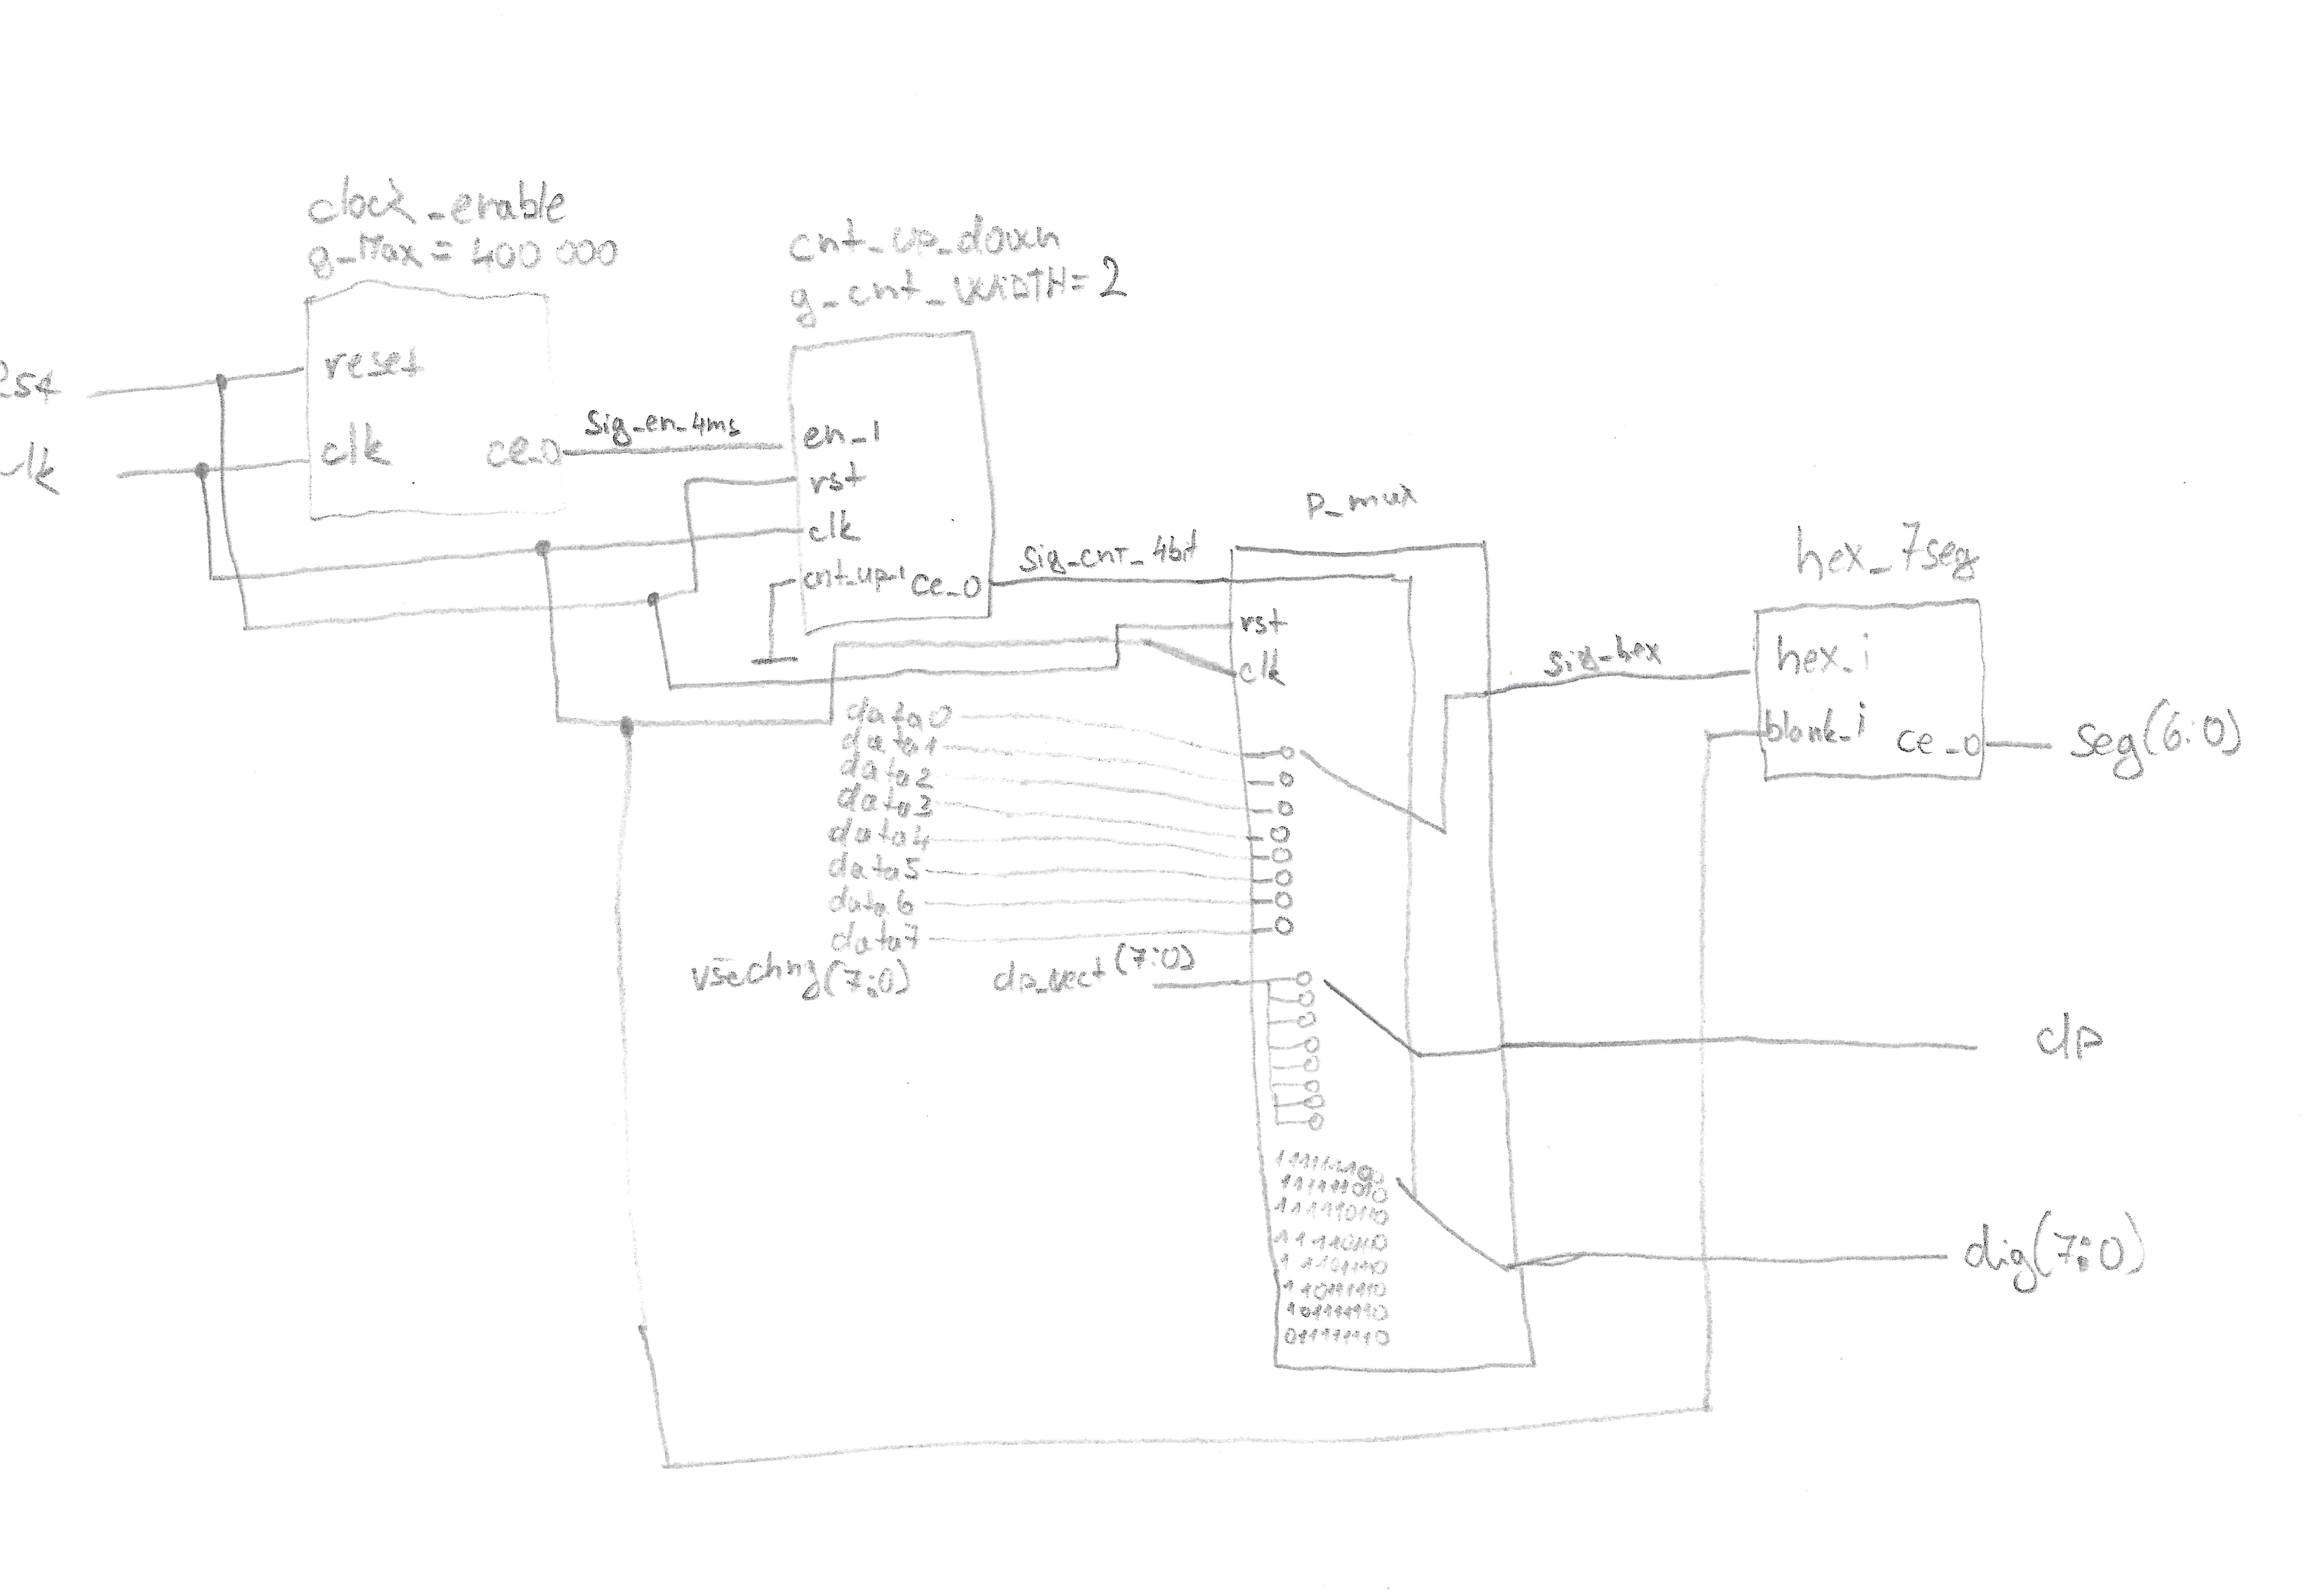 clock_enable
g_Max = 400 000
reset
clk
ce_o
sig_en_4ms
cnt_up_down
g_cnt_WIDTH=2
en_i
rst
clk
cnt_up_i
ce_o
sig_cnt_4bit
p_mux
rst
clk
data0
data1
data2
data3
data4
data5
data6
data7
všechny(7:0)
dp_vect(7:0)
11110110
11101110
11011110
10111110
01111110
sig_hex
hex_7seg
hex_i
blank_i
ce_o
seg(6:0)
dp
dig(7:0)